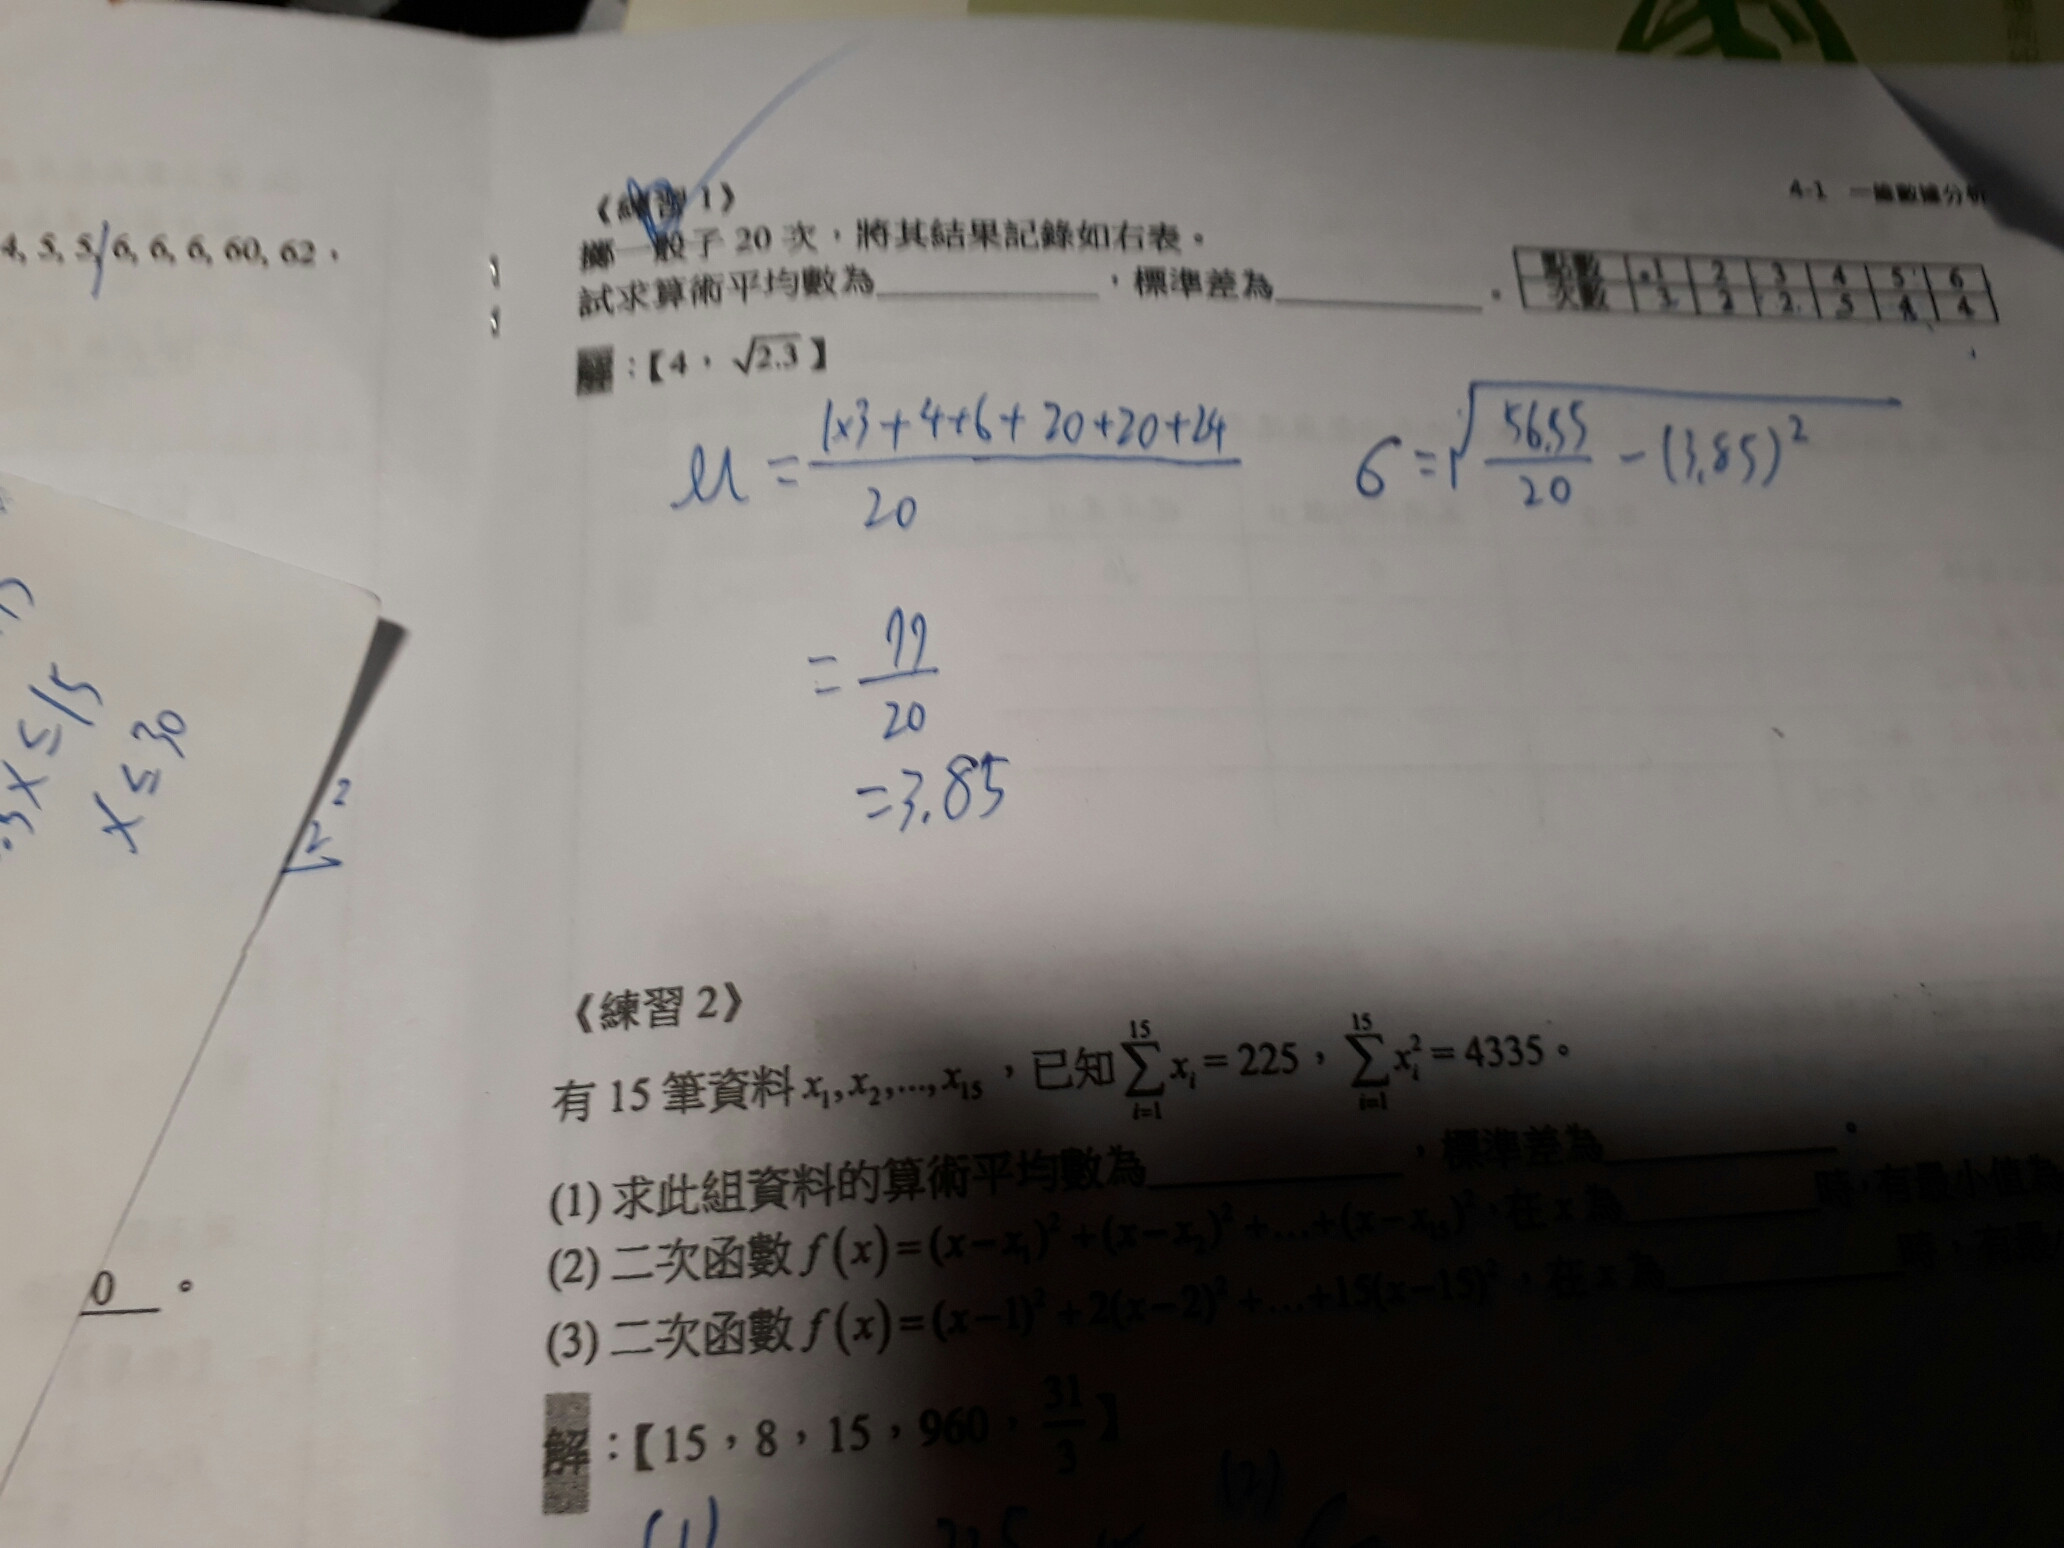 4-1 一維數據分析
4, 5, 5, 6, 6, 6, 60, 62，
《練習 1》
擲一骰子 20 次，將其結果記錄如右表。
試求算術平均數為，標準差為。
點數 1 2 3 4 5 6
次數 3 2 2 5 4 4
解：【4，√2.3】
μ = (1×3+4+6+20+20+24)/20
σ = √(56.55/20 - (3.85)²)
= 77/20
= 3.85
x ≤ 15
x ≤ 30
0 。
《練習 2》
有 15 筆資料 x₁, x₂, ..., x₁₅，已知 ∑_{i=1}^{15} xᵢ = 225，∑_{i=1}^{15} xᵢ² = 4335。
(1) 求此組資料的算術平均數為，標準差為。
(2) 二次函數 f(x)=(x-x₁)²+(x-x₂)²+...+(x-x₁₅)²，在 x 為時，有最小值為
(3) 二次函數 f(x)=(x-1)²+2(x-2)²+...+15(x-15)²，在 x 為時，有最
解：【15，8，15，960，31/3】
(1)
(2)